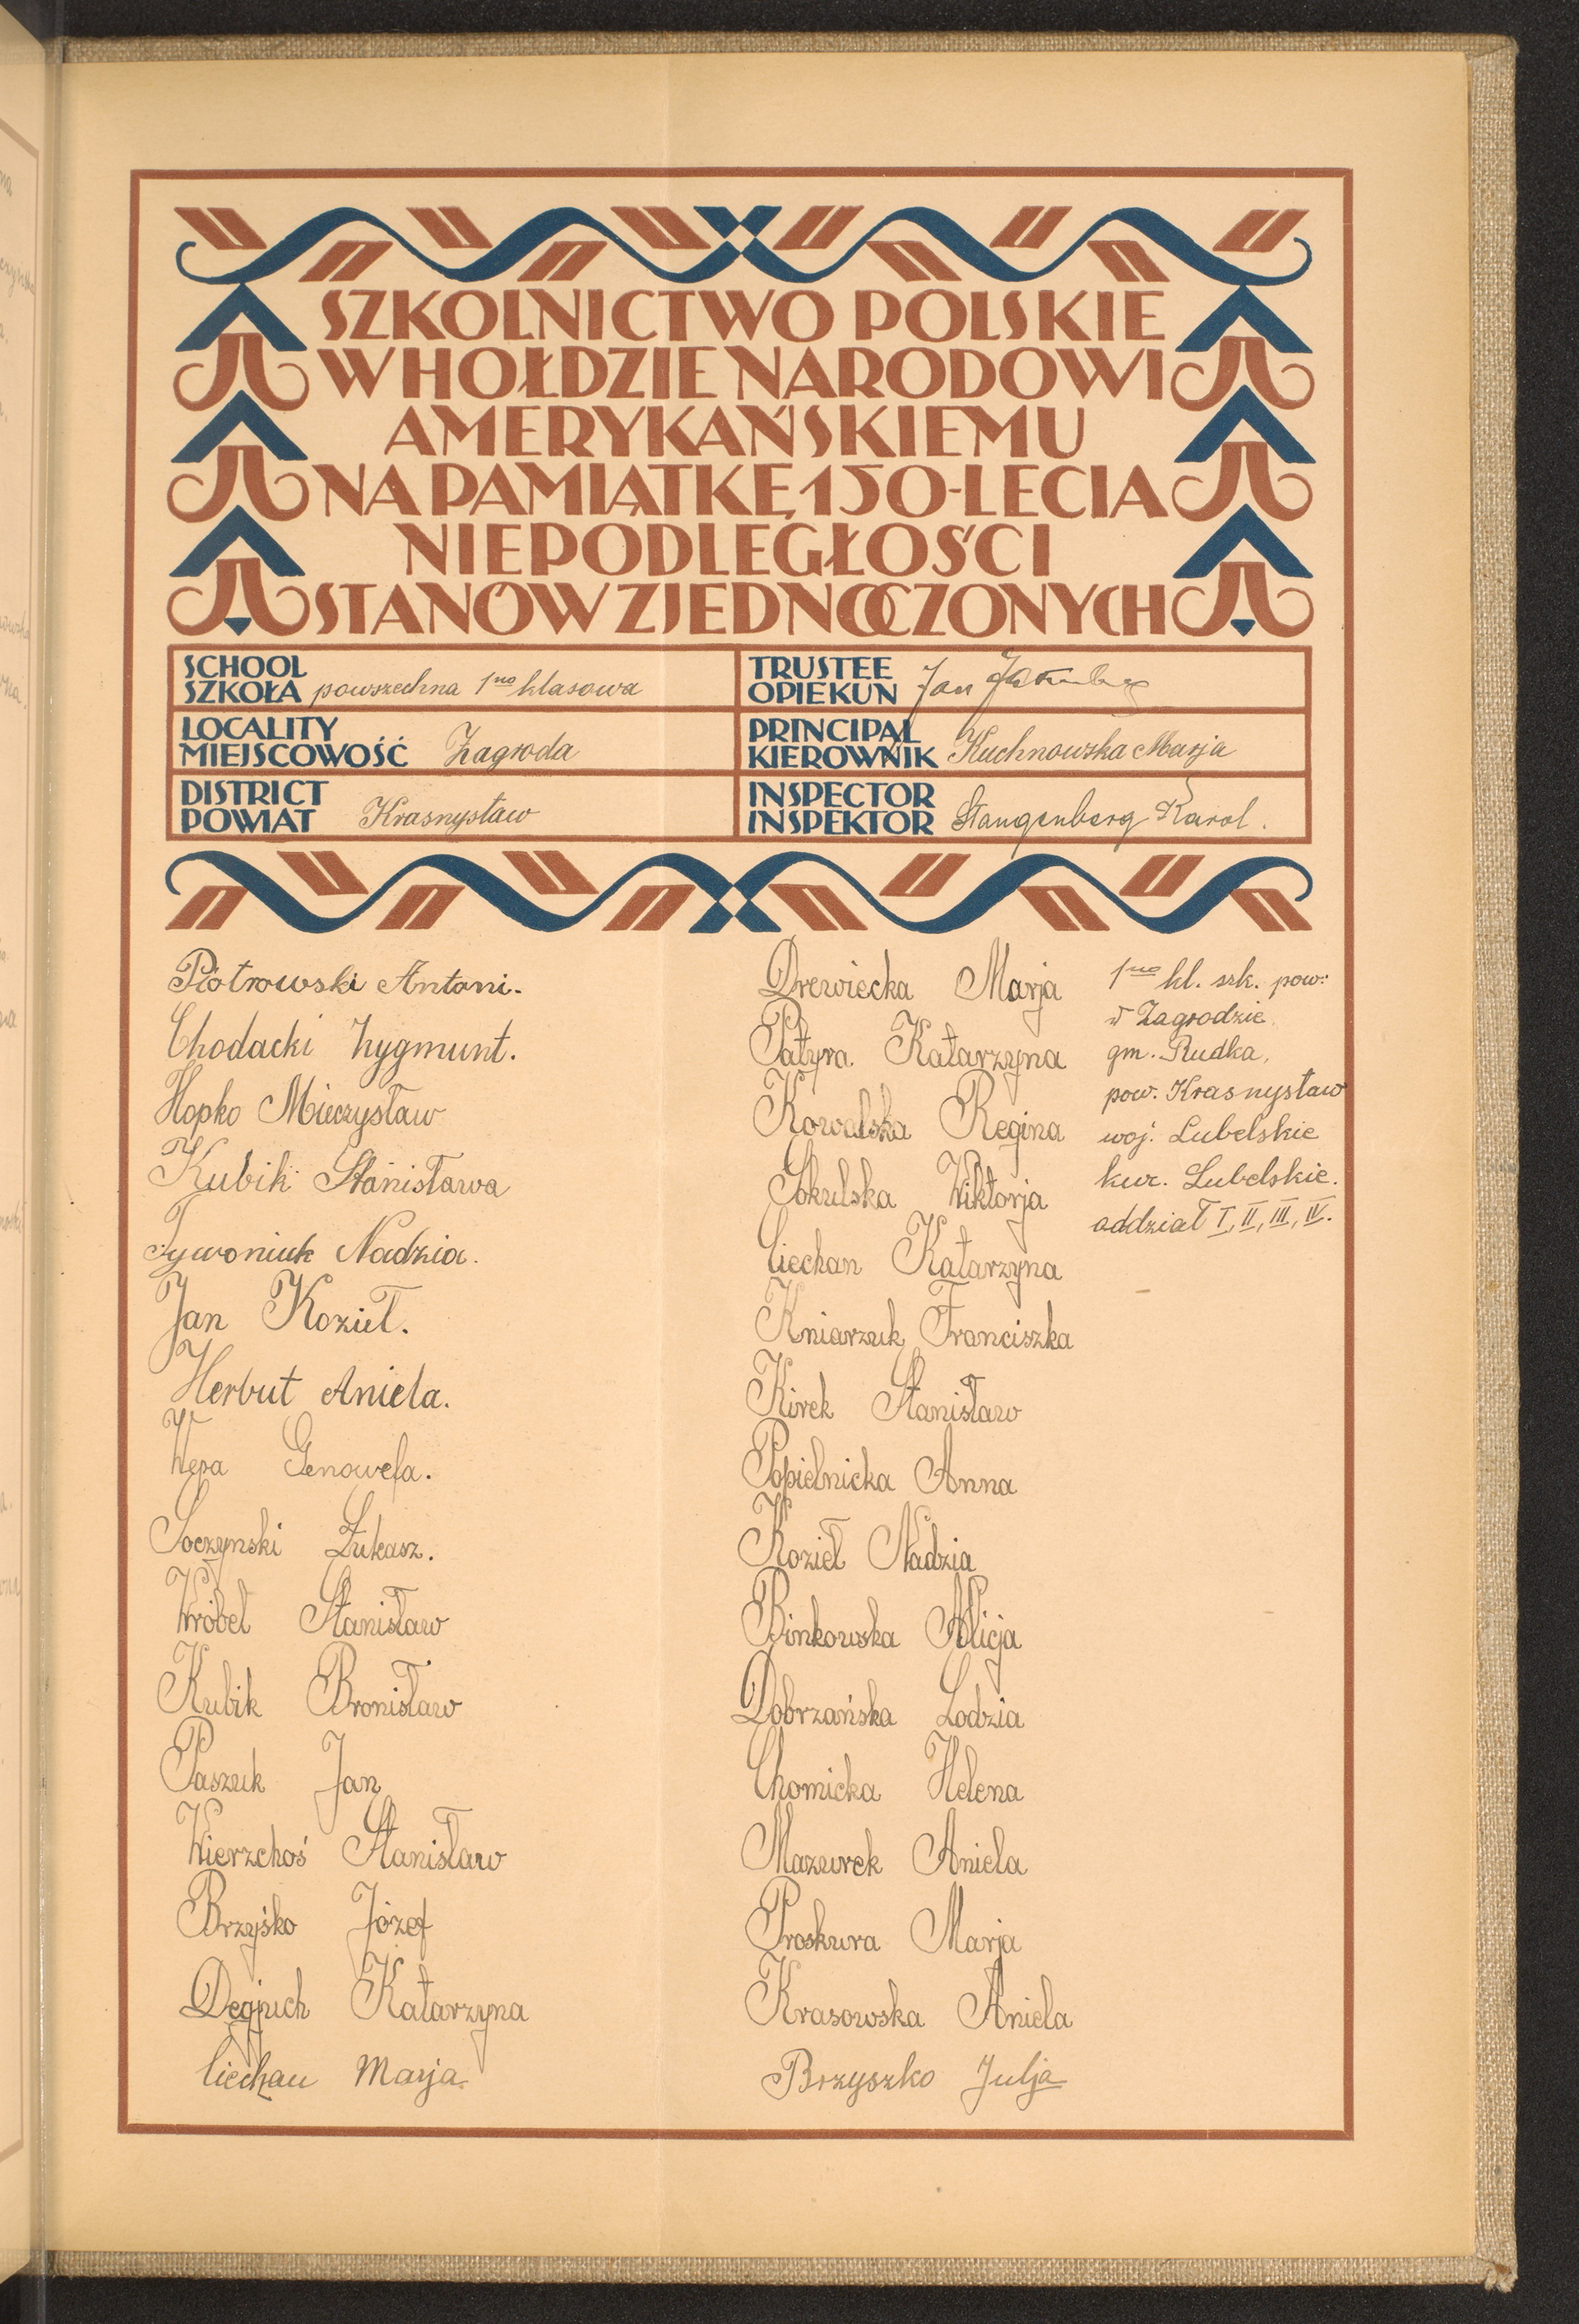 SZKOLNICTWO POLSKIE
W HOŁDZIE NARODOWI
AMERYKAŃSKIEMU
NA PAMIĄTKĘ 150-LECIA
NIEPODLEGŁOŚCI
STANÓW ZJEDNOCZONYCH
SCHOOL
SZKOŁA powszechna 1no klasowa
TRUSTEE
OPIEKUN Jan
LOCALITY
MIEJSCOWOŚĆ Zagroda
PRINCIPAL
KIEROWNIK Kuchnowska Marja
DISTRICT
POWIAT Krasnystaw
INSPECTOR
INSPEKTOR Stangenberg Karol.
Piotrowski Antoni.
Chodacki Zygmunt.
Hopko Mieczysław
Kubik Stanisława
Tywoniuk Nadzia.
Jan Kozieł.
Herbut Aniela.
Wepa Genowefa.
Soczynski Łukasz.
Wróbel Stanisław
Kubik Bronisław
Paszuk Jan
Wierzchoś Stanisław
Brzyśko Józef
Katarzyna
Ciechan Marja
Drewiecka Marja
Patyra Katarzyna
Kowalska Regina
Sokulska Wiktorja
Ciechan Katarzyna
Kniarzuk Franciszka
Kirek Stanisław
Popielnicka Anna
Kozieł Nadzia
Binkowska Alicja
Dobrzańska Lodzia
Chomicka Helena
Mazurek Aniela
Proskura Marja
Krasowska Aniela
Brzyszko Julja
1no kl. szk. pow:
w Zagrodzie.
gm. Rudka,
pow. Krasnystaw
woj. Lubelskie
kur. Lubelskie.
oddział I, II, III, IV.